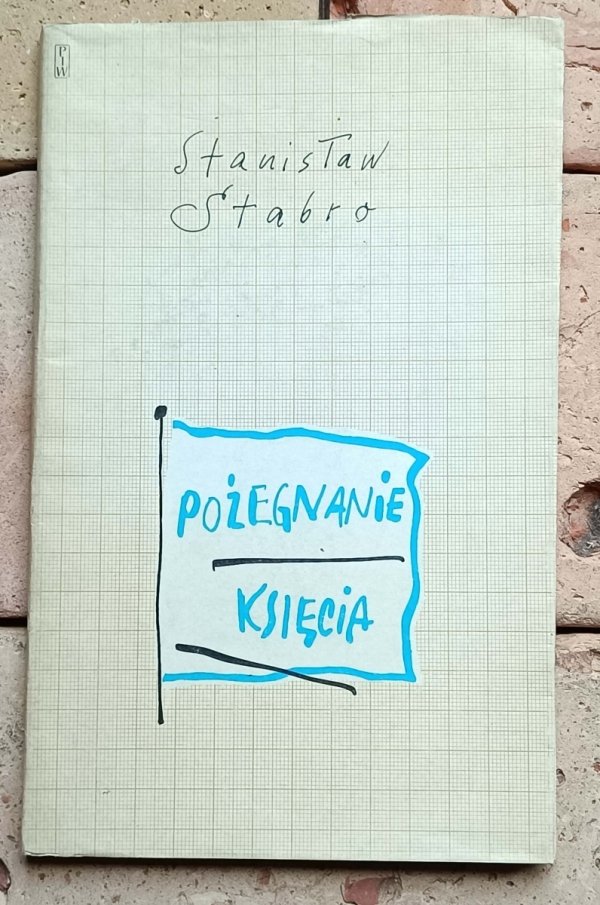 PIW
Stanisław
Stabro
POŻEGNANiE
KSIĘCiA